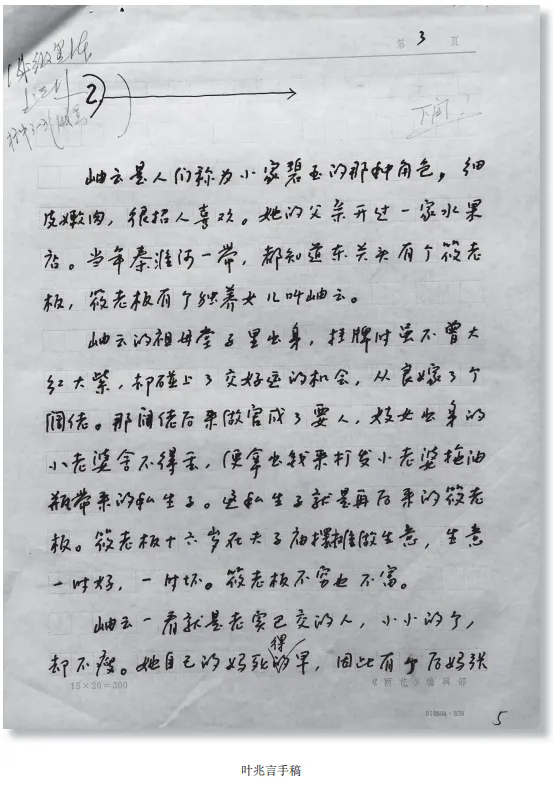 第 3 页
2.
下闻
岫云是人们称为小家碧玉的那种角色，细
皮嫩肉，很招人喜欢。她的父亲开过一家水果
店。当年秦淮河一带，都知道东关头有个筱老
板，筱老板有个独养女儿叫岫云。
岫云的祖母堂子里出身，挂牌时虽不曾大
红大紫，却碰上了交好运的机会，从良嫁了个
阔佬。那阔佬后来做官成了要人，妓女出身的
小老婆舍不得丢，便拿出钱来打发小老婆拖油
瓶带来的私生子。这私生子就是再后来的筱老
板。筱老板十六岁在夫子庙摆摊做生意，生意
一时好，一时坏。筱老板不穷也不富。
岫云一看就是老实巴交的人，小小的个，
得
却不瘦。她自己的妈死的早，因此有个后妈张
15×20=300 《雨花》编辑部
5
叶兆言手稿